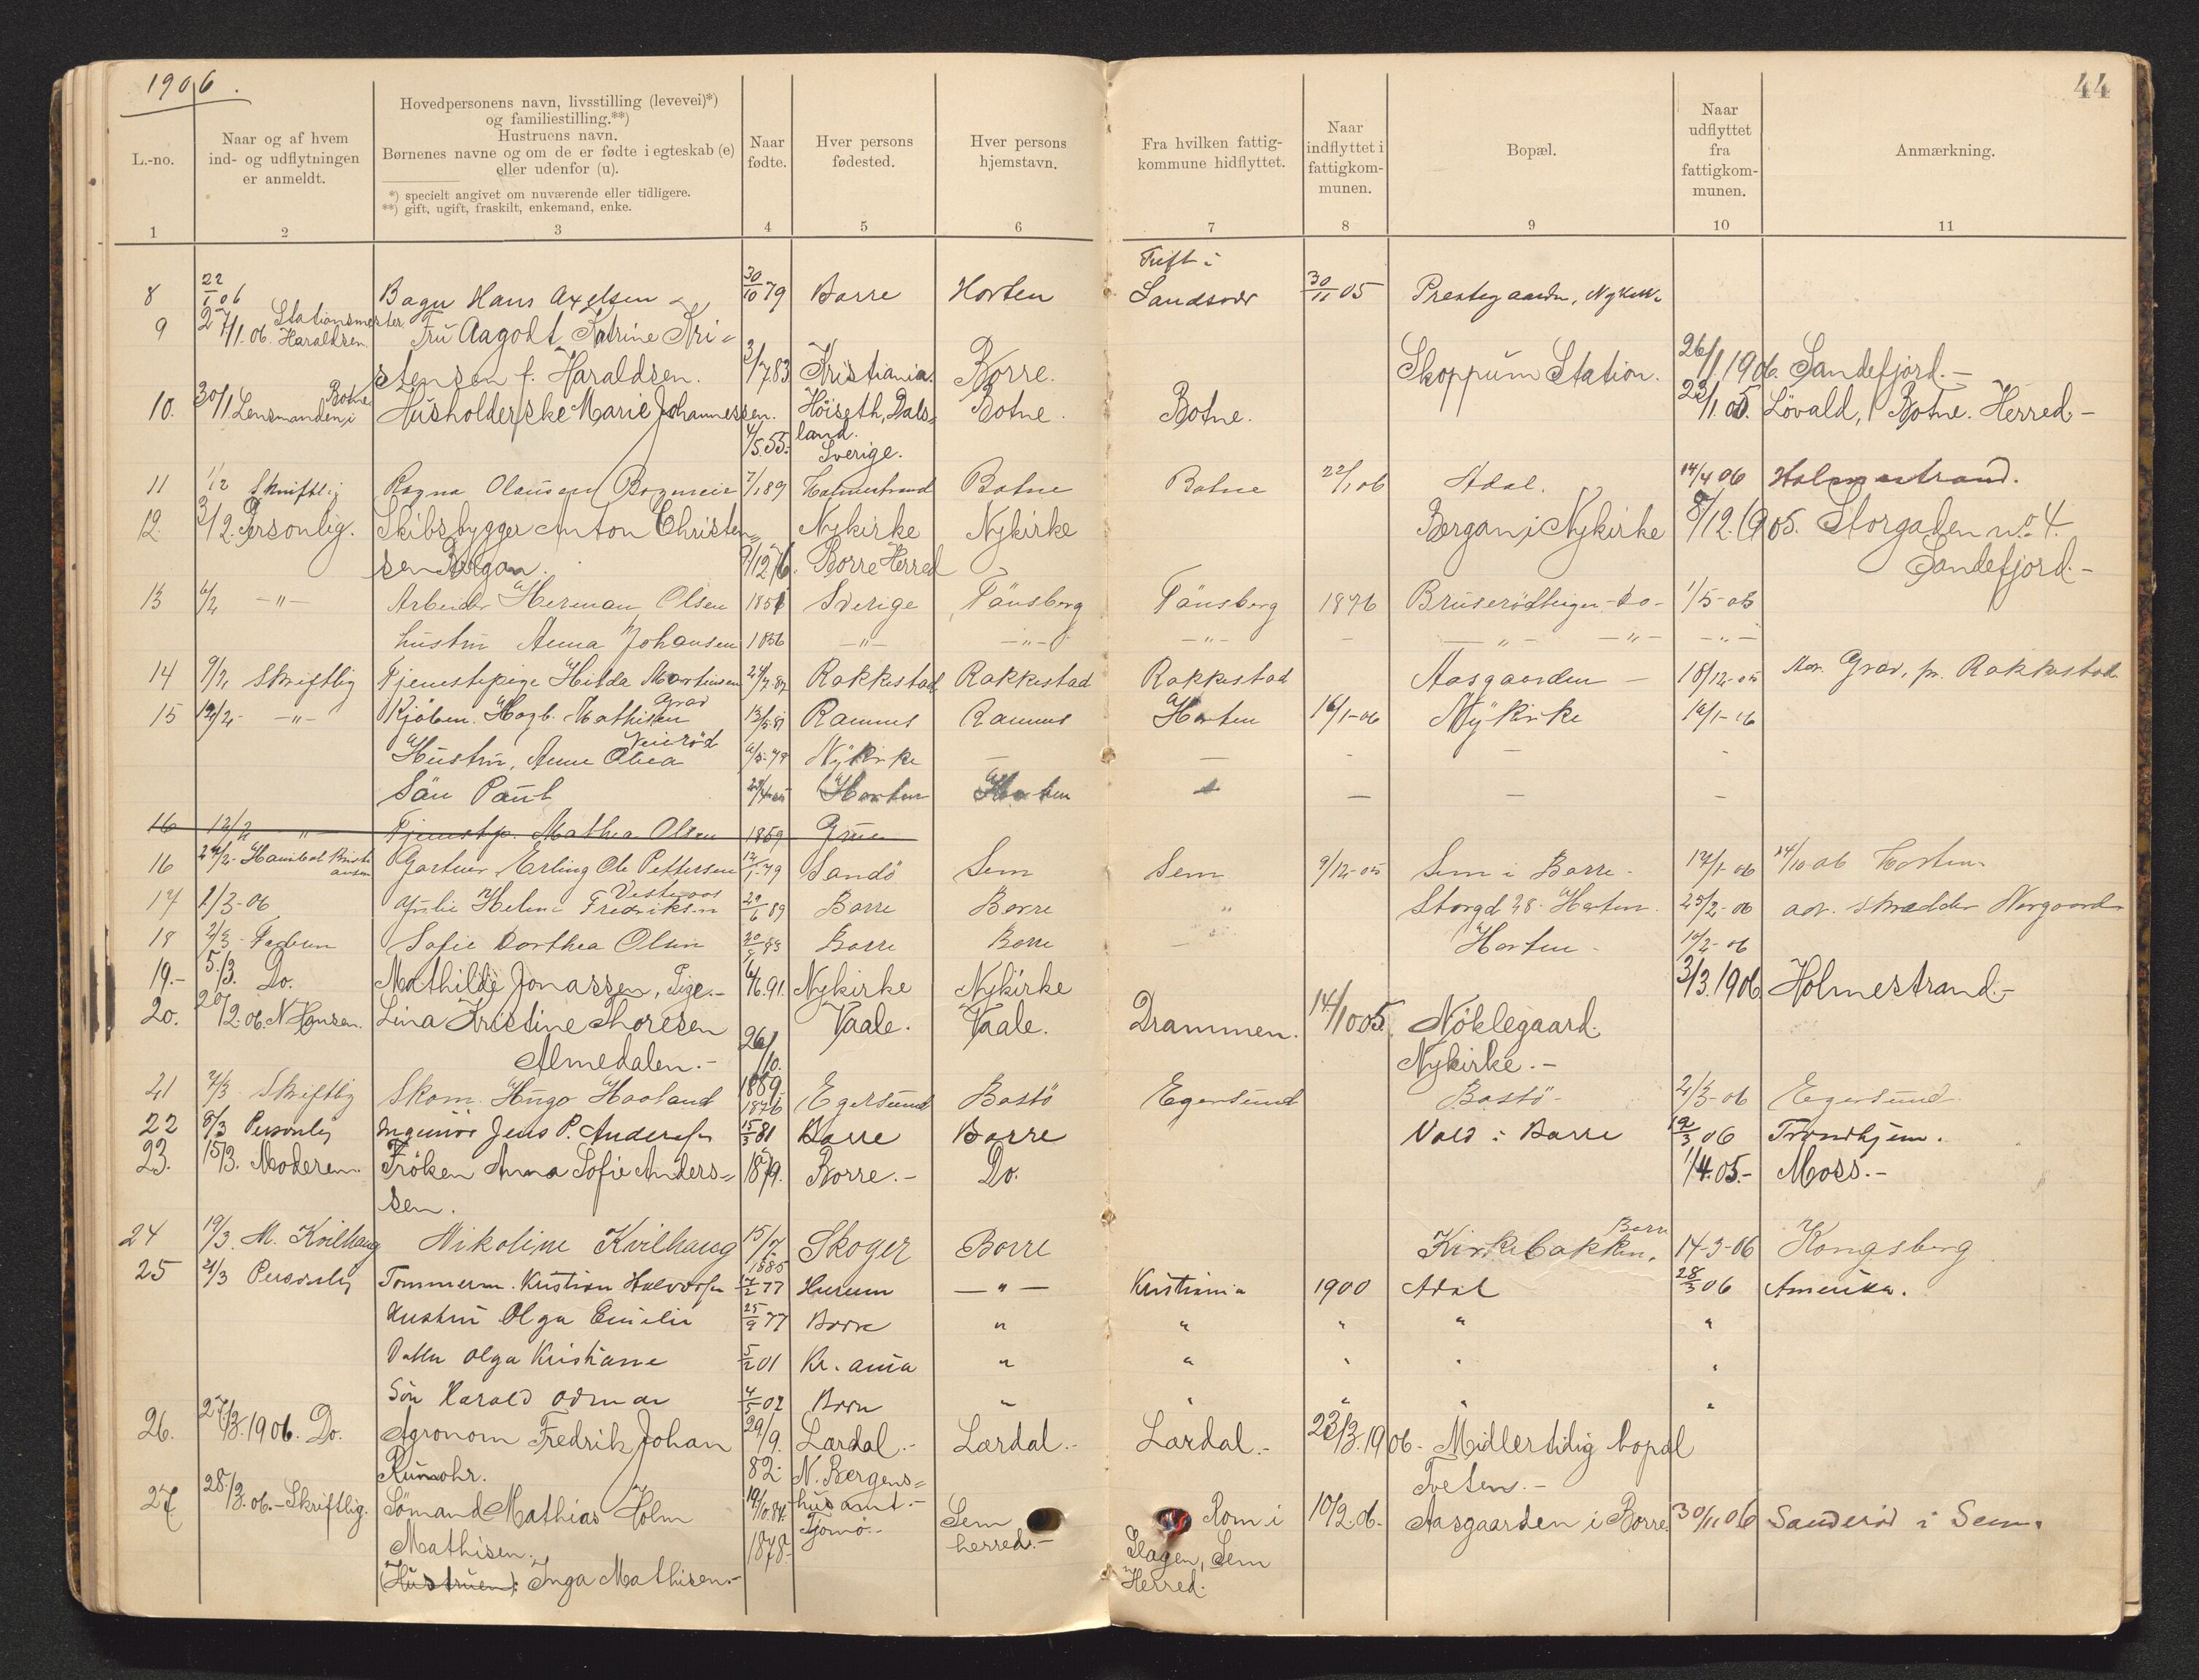 1906.
44
L.-no.
Naar og af hvem
ind- og udflytningen
er anmeldt.
Hovedpersonens navn, livsstilling (levevei)*)
og familiestilling.**)
Hustruens navn.
Børnenes navne og om de er fødte i egteskab (e)
eller udenfor (u).
*) specielt angivet om nuværende eller tidligere.
**) gift, ugift, fraskilt, enkemand, enke.
Naar
fødte.
Hver persons
fødested.
Hver persons
hjemstavn.
Fra hvilken fattig-
kommune hidflyttet.
Naar
indflyttet i
fattigkom-
munen.
Bopæl.
Naar
udflyttet
fra
fattigkom-
munen.
Anmærkning.
1 2 3 4 5 6 7 8 9 10 11
8 22/1 06 Hans Axelsen 30/10 79 Borre Horten Sandsvær 30/11 05
9 27/1.06. Stationsmester Haraldsen. Fru Aagodt Katrine Kri=
stensen f. Haraldsen. 3/7.83 Kristiania. Borre. Skoppum Station. 26/1.1906. Sandefjord.-
10. 30/1 Lensmanden i Botne Husholderske Marie Johannessen. Höiseth, Dals= Botne. Botne. 23/1.05. Løvald, Botne. Herred-
4/5.55. land.
Sverige.
11 1/2 Skriftlig Ragna Olausen 7/1 89 Holmestrand Botne Botne 22/1 06 Adal. 14/4 06 Holmestrand.
12. 3/2. Personlig. Skibsbygger Anton Christen= Nykirke Nykirke Bergan i Nykirke 8/12.1905. Storgaden no. 4.
sen Bergan. 9/12 76. Borre Herred Sandefjord.-
13 6/2 -"- Arbeider Herman Olsen 1851 Sverige Tønsberg Tønsberg 1876 1/5-05
hustru Anna Johansen 1856 -"- -"- -"- - -"- -"- -"-
14 9/2 Skriftlig Tjenestepige Hilda Martinsen Rakkestad Rakkestad Rakkestad Aasgaarden - 18/12-05 Grav, pr. Rakkestad
15 12/2- -"- Kjøbm. Hagb. Mathisen Grav Ramnes Ramnes Horten 16/1-06 Nykirke
Hustru, Anne Olea Veierød Nykirke - - - - -
Søn Paul Horten Horten - - -
16 12/2 " Tjenestp. Mathea Olsen 1859
16 Gartner Erling Ole Pettersen 12/1-79 Sandö Sem Sem 9/12-05 Sem i Borre- 17/1-06 Horten
17 1/3-06 Julie Helene Fredriksen 29/6 89 Borre Borre " Storgd 28 Horten 25/2-06 adr. skrædder Norgaard
18 2/3- Sofie Dorthea Olsen Borre Borre Horten-
19.- 5/3. Do. Mathilde Jonassen, Pige.- 4/6.91. Nykirke Nykirke 3/3.1906. Holmestrand.-
20. 20/2.06. N Hansen. Lina Kristine Thoresen 26/10. Vaale. Vaale. Drammen. 14/10 05. Nöklegaard.
Almedalen.- 1889. Nykirke.-
21 Skriftlig Skom. Hugo Haaland 1876 Egersund Bastö Egersund Bastö- 2/3-06 Egersund
22 8/3 Personlig Ingeniør Jens P. Andersen 15/3 81 Borre Borre Vold i Borre 12/3 06 Trondhjem.
23. 15/3. Moderen. Frøken Anna Sofie Anders= 1879. Borre.- Do. 1/4.05.- Moss.-
sen.
24 19/3. M. Kvilhaug Nikoline Kvilhaug 15/7 1885 Skoger Borre Kirkebakken, Borre 14-3-06 Kongsberg
25 Personlig Tømmerm. Kristian Halvorsen 77 Hurum -"- Kristiania 1900 Adal 28/3 06 Amerika.
Hustru Olga Emilie 25/9 77 Borre " " " " "
Datter Olga Kristiane 5/2 01 Kr.ania " " " " "
Søn Harald Odmar 4/5 02 Borre " " " " "
26. 27/3.1906. Do. Agronom Fredrik Johan 29/9. Lærdal.- Lærdal.- Lærdal.- 23/3.1906- Midlertidig bopæl
Rumohr. 82. N. Bergens= Tveten.-
27. 28/3.06.- Skriftlig. Sömand Mathias Holm 19/10.84. hus amt.- Sem Rom i 10/2.06. Aasgaarden i Borre. 30/11 06 Sanderød i Sem.
Mathisen. 1878- Tjømø.- herred.- Slagen, Sem
(Hustruen): Inga Mathisen.- Herred.